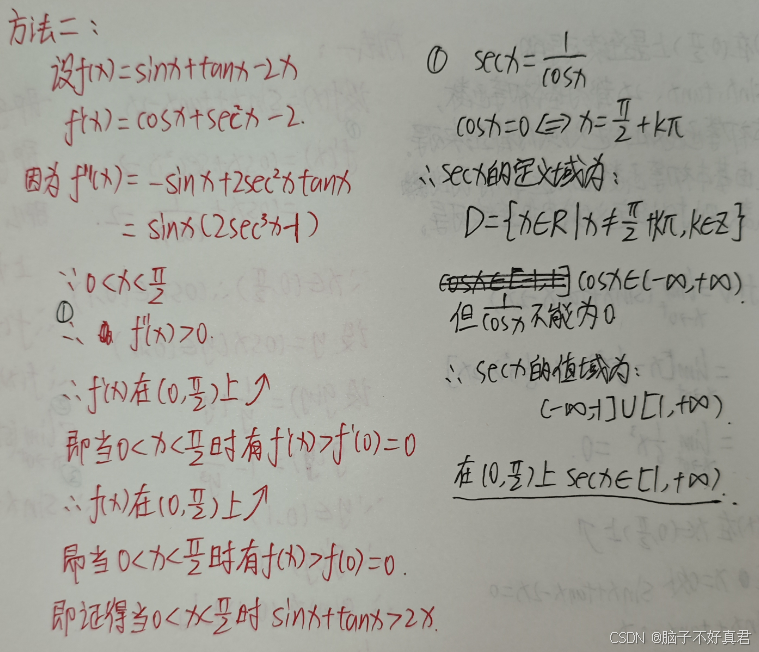 方法二:
设f(x)=sinx+tanx-2x
f'(x)=cosx+sec²x-2.
因为f''(x)=-sinx+2sec²xtanx
=sinx(2sec³x-1)
∵0<x<π/2
①
∴ f''(x)>0.
∴f'(x)在(0,π/2)上↗
即当0<x<π/2时有f'(x)>f'(0)=0
∴f(x)在(0,π/2)上↗
即当0<x<π/2时有f(x)>f(0)=0.
即证得当0<x<π/2时 sinx+tanx>2x.
① secx=1/cosx
cosx=0⇔x=π/2+kπ
∴secx的定义域为:
D={x∈R|x≠π/2+kπ,k∈Z}
cosx∈[-1,1] cosx∈(-∞,+∞)
但1/cosx不能为0
∴secx的值域为:
(-∞,-1]∪[1,+∞).
在(0,π/2)上 secx∈[1,+∞).
CSDN @脑子不好真君